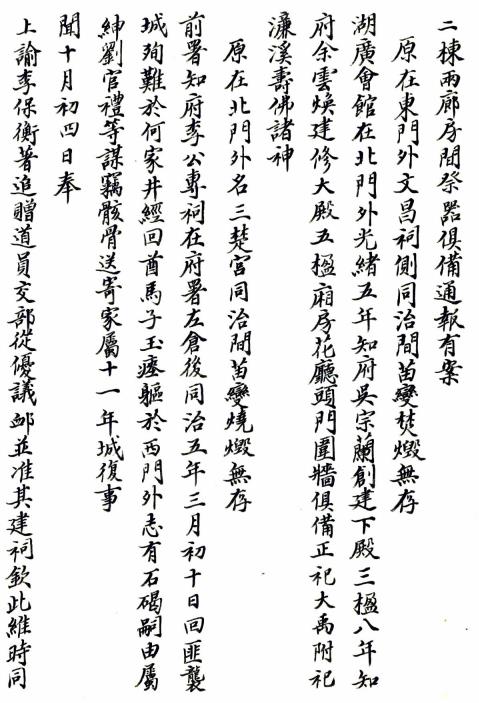 二棟兩廊房間祭器俱備通報有案
原在東門外文昌祠側同治間苗變焚燬無存
湖廣會館在北門外光緒五年知府吳宗蘭創建下殿三楹八年知
府余雲煥建修大殿五楹廂房花廳頭門圍牆俱備正祀大禹附祀
濂溪壽佛諸神
原在北門外名三楚宮同治間苗變燒燬無存
前署知府李公專祠在府署左倉後同治五年三月初十日回匪襲
城殉難於何家井經回酋馬子玉瘞軀於西門外志有石碣嗣由屬
紳劉官禮等謀竊骸骨送寄家屬十一年城復事
聞十月初四日奉
上諭李保衡著追贈道員交部從優議卹並准其建祠欽此維時同